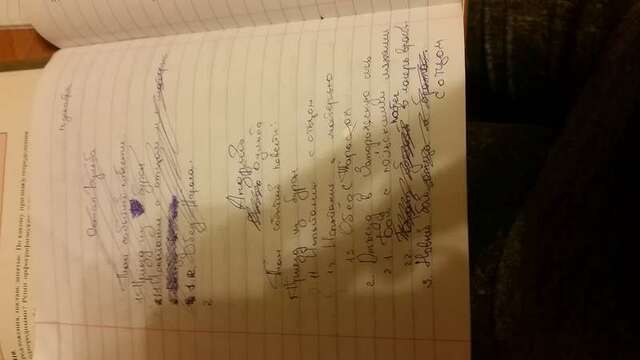 предложения, поставь запятые. По какому признаку определения
однородными? Реши орфографические
Остап Бульба
План событий повести.
1. Приезд из бурси
1.1 Испытание с отцом и с матерью
1.2. Обед Тараса.
2
Андрий
Бульба
План событий повести:
1. Приезд из бурси
1.1 Испытание с отцом
1.2 Испытание с матерью
1.3 Обед с Тарасом
2. Отъезд в Запорожскую сечь
2.1. Бой с польскими ляхами
2.2. побег в лагерь врагов
3. Новый бой
с отцом